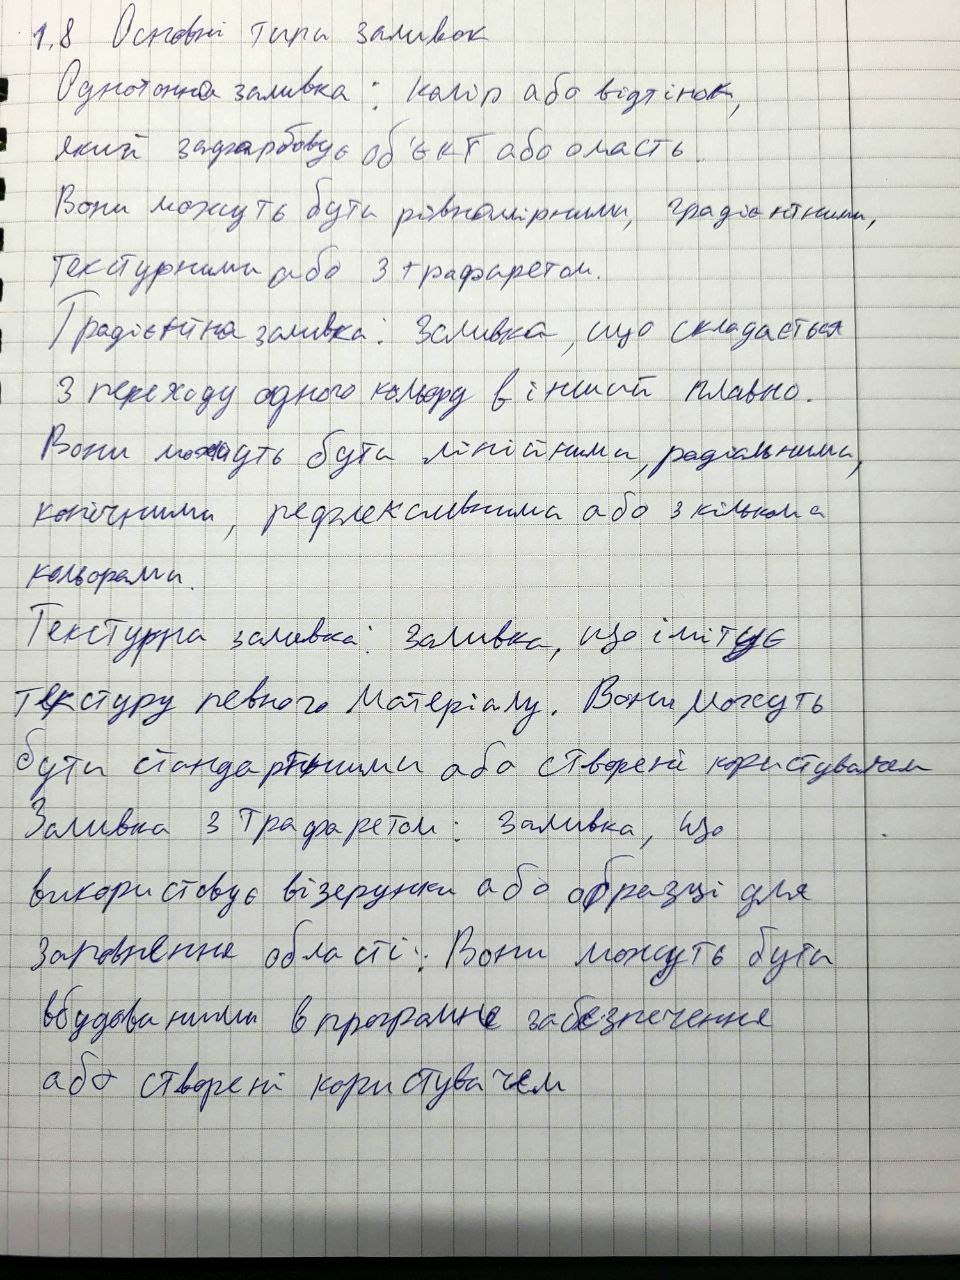 1.8 Основні типи заливок
Однотонна заливка: колір або відтінок,
який зафарбовує об'єкт або оласть.
Вони можуть бути рівномірними, градієнтними,
текстурними або з трафаретом.
Градієнтна заливка: Заливка, що складається
з переходу одного кольору в інший плавно.
Вони можуть бути лінійними, радіальними,
конічними, рефлексивними або з кількома
кольорами.
Текстурна заливка: заливка, що імітує
текстуру певного матеріалу. Вони можуть
бути стандартними або створені користувачем
Заливка з трафаретом: заливка, що
використовує візерунки або образці для
заповнення області. Вони можуть бути
вбудованими в програмне забезпечення
або створені користувачем